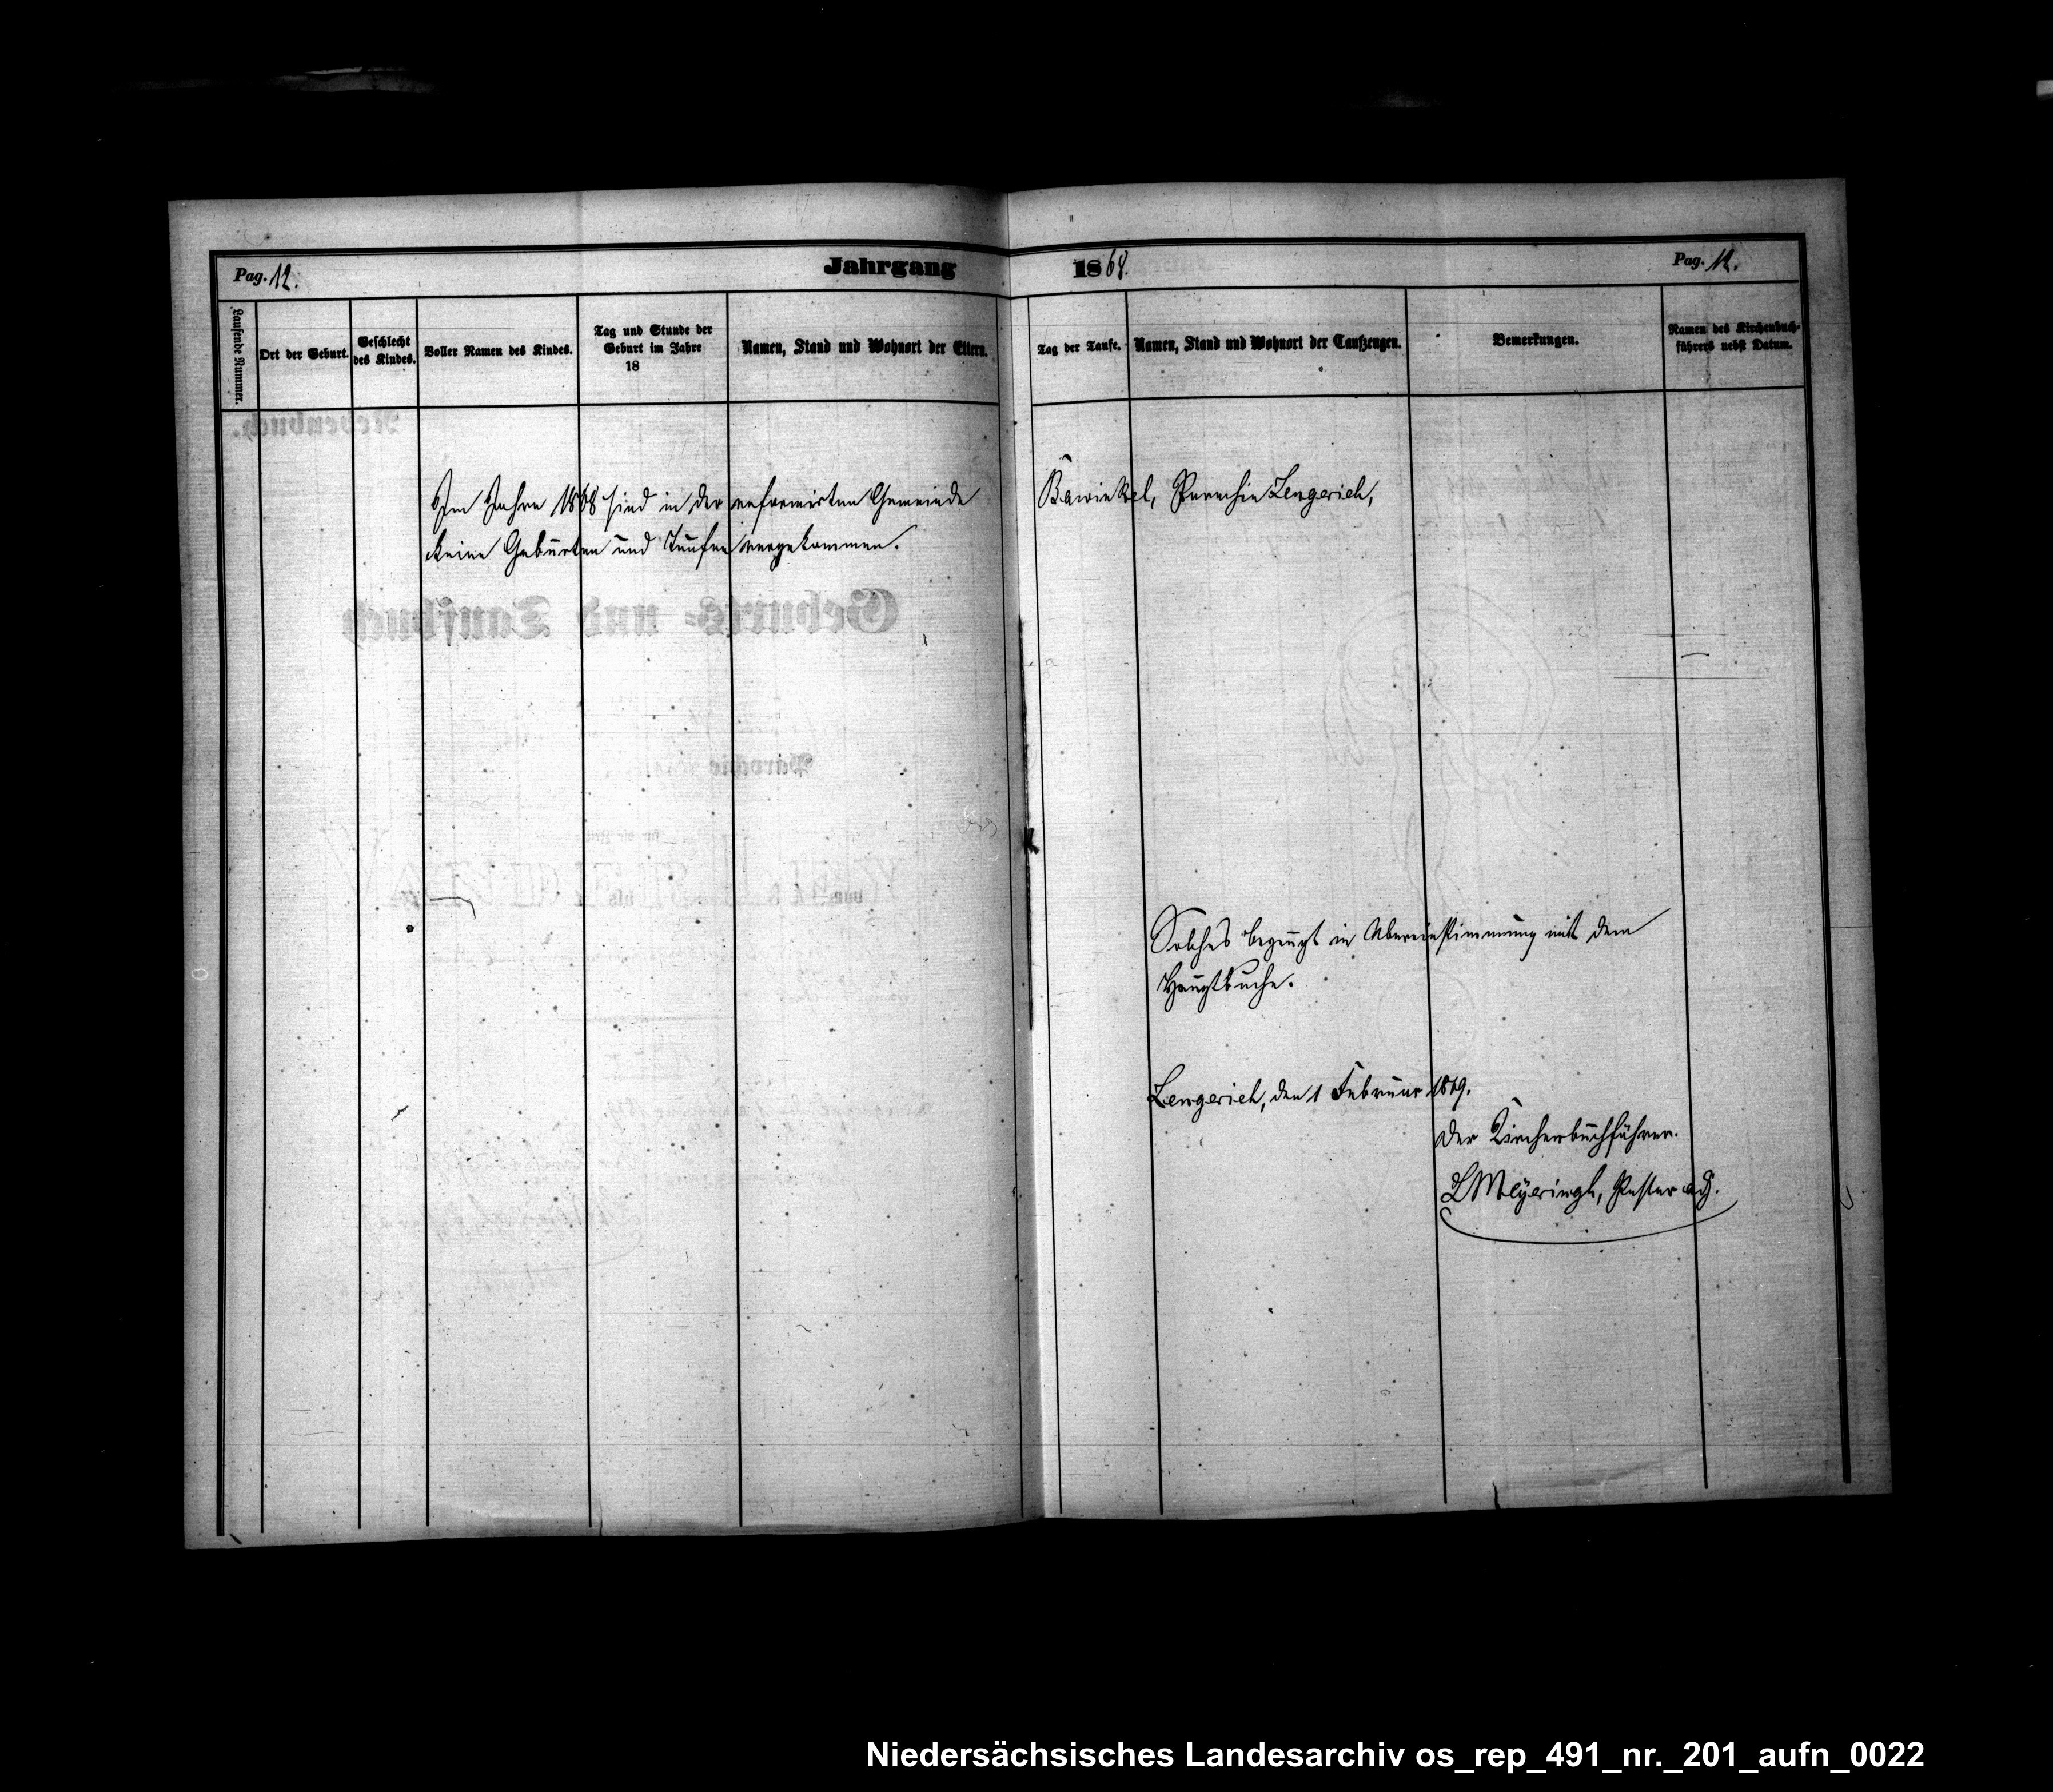 Pag. 12. Jahrgang 1868. Pag. 12.
Laufende Nummer.
Ort der Geburt.
Geschlecht
des Kindes.
Voller Namen des Kindes.
Tag und Stunde der
Geburt im Jahre
18
Namen, Stand und Wohnort der Eltern.
Tag der Taufe.
Namen, Stand und Wohnort der Taufzeugen.
Bemerkungen.
Namen des Kirchenbuch-
führers nebst Datum.
Im Jahre 1868 sind in der reformirten Gemeinde Bawinkel, Parochie Lengerich,
keine Geburten und Taufen vorgekommen.
Nebenbuch.
Geburts- und Taufbuch
Parochie
für die Zeit
vom
bis
Solches bezeugt in Übereinstimmung mit dem
Hauptbuche.
Lengerich, den 1 Februar 1869.
Der Kirchenbuchführer.
LMeÿeringh, Pastor adj.
Niedersächsisches Landesarchiv os_rep_491_nr._201_aufn_0022